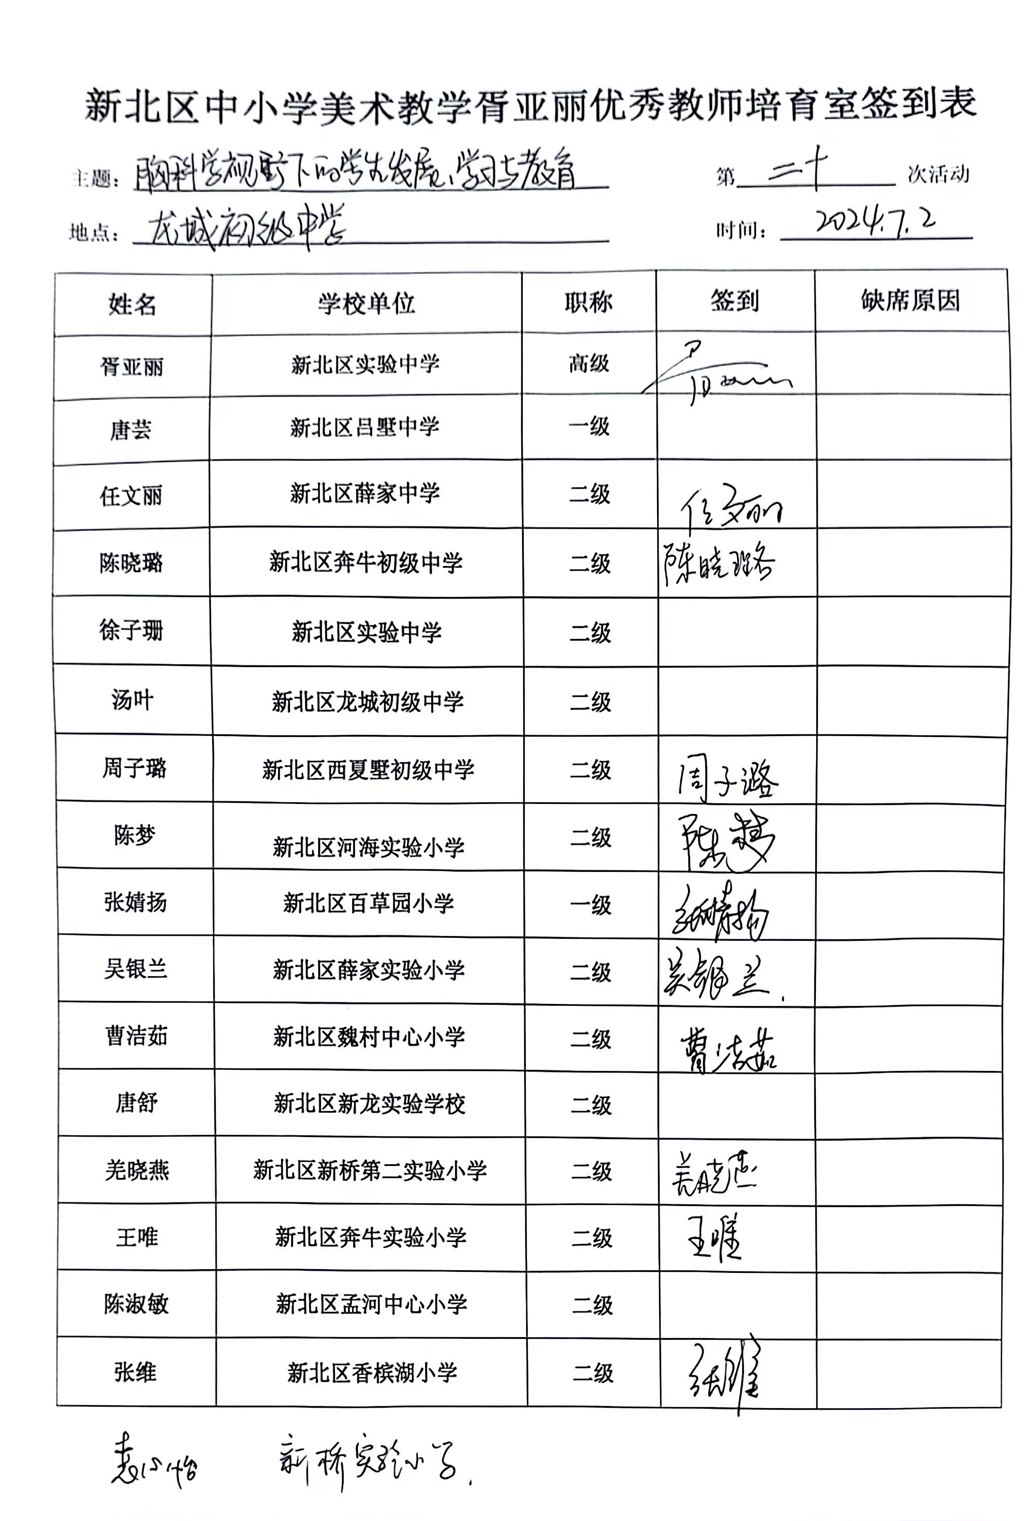 新北区中小学美术教学胥亚丽优秀教师培育室签到表
主题：脑科学视野下的学生发展、学习与教育 第二十次活动
地点：龙城初级中学 时间：2024.7.2
姓名 学校单位 职称 签到 缺席原因
胥亚丽 新北区实验中学 高级
唐芸 新北区吕墅中学 一级
任文丽 新北区薛家中学 二级 任文丽
陈晓璐 新北区奔牛初级中学 二级 陈晓璐
徐子珊 新北区实验中学 二级
汤叶 新北区龙城初级中学 二级
周子璐 新北区西夏墅初级中学 二级 周子璐
陈梦 新北区河海实验小学 二级 陈梦
张婧扬 新北区百草园小学 一级 张婧扬
吴银兰 新北区薛家实验小学 二级 吴银兰.
曹洁茹 新北区魏村中心小学 二级 曹洁茹
唐舒 新北区新龙实验学校 二级
羌晓燕 新北区新桥第二实验小学 二级 羌晓燕
王唯 新北区奔牛实验小学 二级 王唯
陈淑敏 新北区孟河中心小学 二级
张维 新北区香槟湖小学 二级 张维
新桥实验小学.